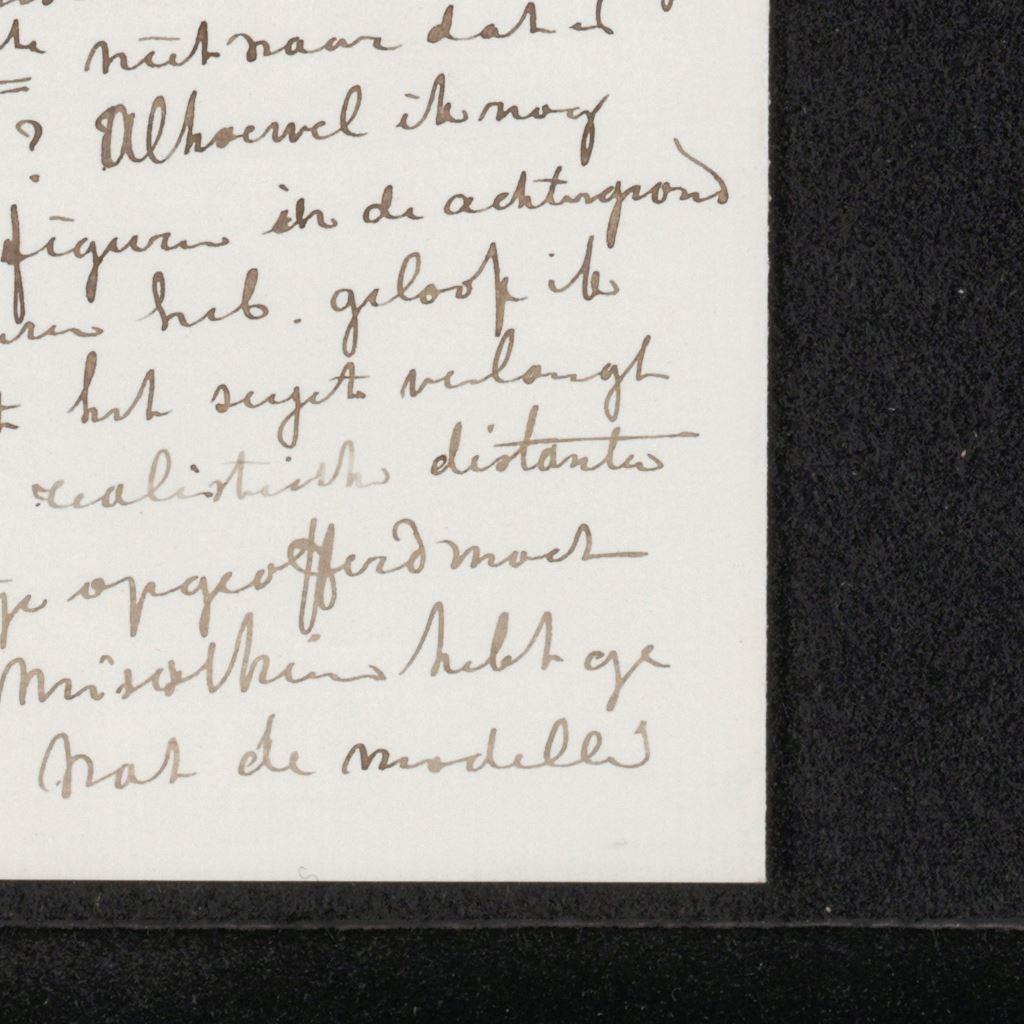 niet naar dat
? Alhoewel ik nog
figuren in de achtergrond
heb. geloof ik
het sujet verlangt
realistische distantie
opgeofferd moet
Misschien hebt ge
nat de modellen